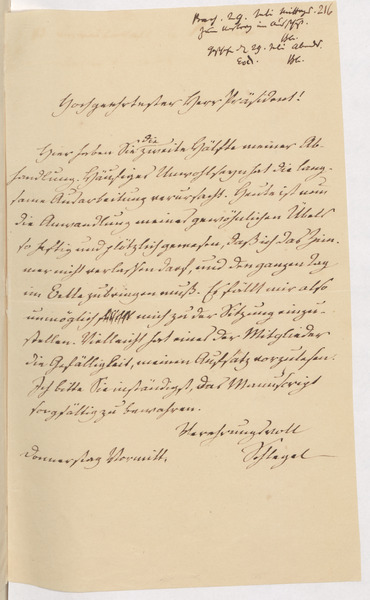 29. Juli Mittags. 216
29 Juli Abends.
Hochgeehrtester Herr Präsident!
die
Hier haben Sie zweite Hälfte meiner Ab-
handlung. Häufiges Unwohlseyn hat die lang-
same Ausarbeitung verursacht. Heute ist nun
die Anwandlung meines gewöhnlichen Übels
so heftig und plötzlich gewesen, daß ich das Zim-
mer nicht verlassen darf, und den ganzen Tag
im Bette zubringen muß. Es fällt mir also
unmöglich, mich zu der Sitzung einzu-
stellen. Vielleicht hat eines der Mitglieder
die Gefälligkeit, meinen Aufsatz vorzulesen.
Ich bitte Sie inständigst, das Manuscript
sorgfältig zu bewahren.
Verehrungsvoll
Donnerstag Vormitt. Schlegel